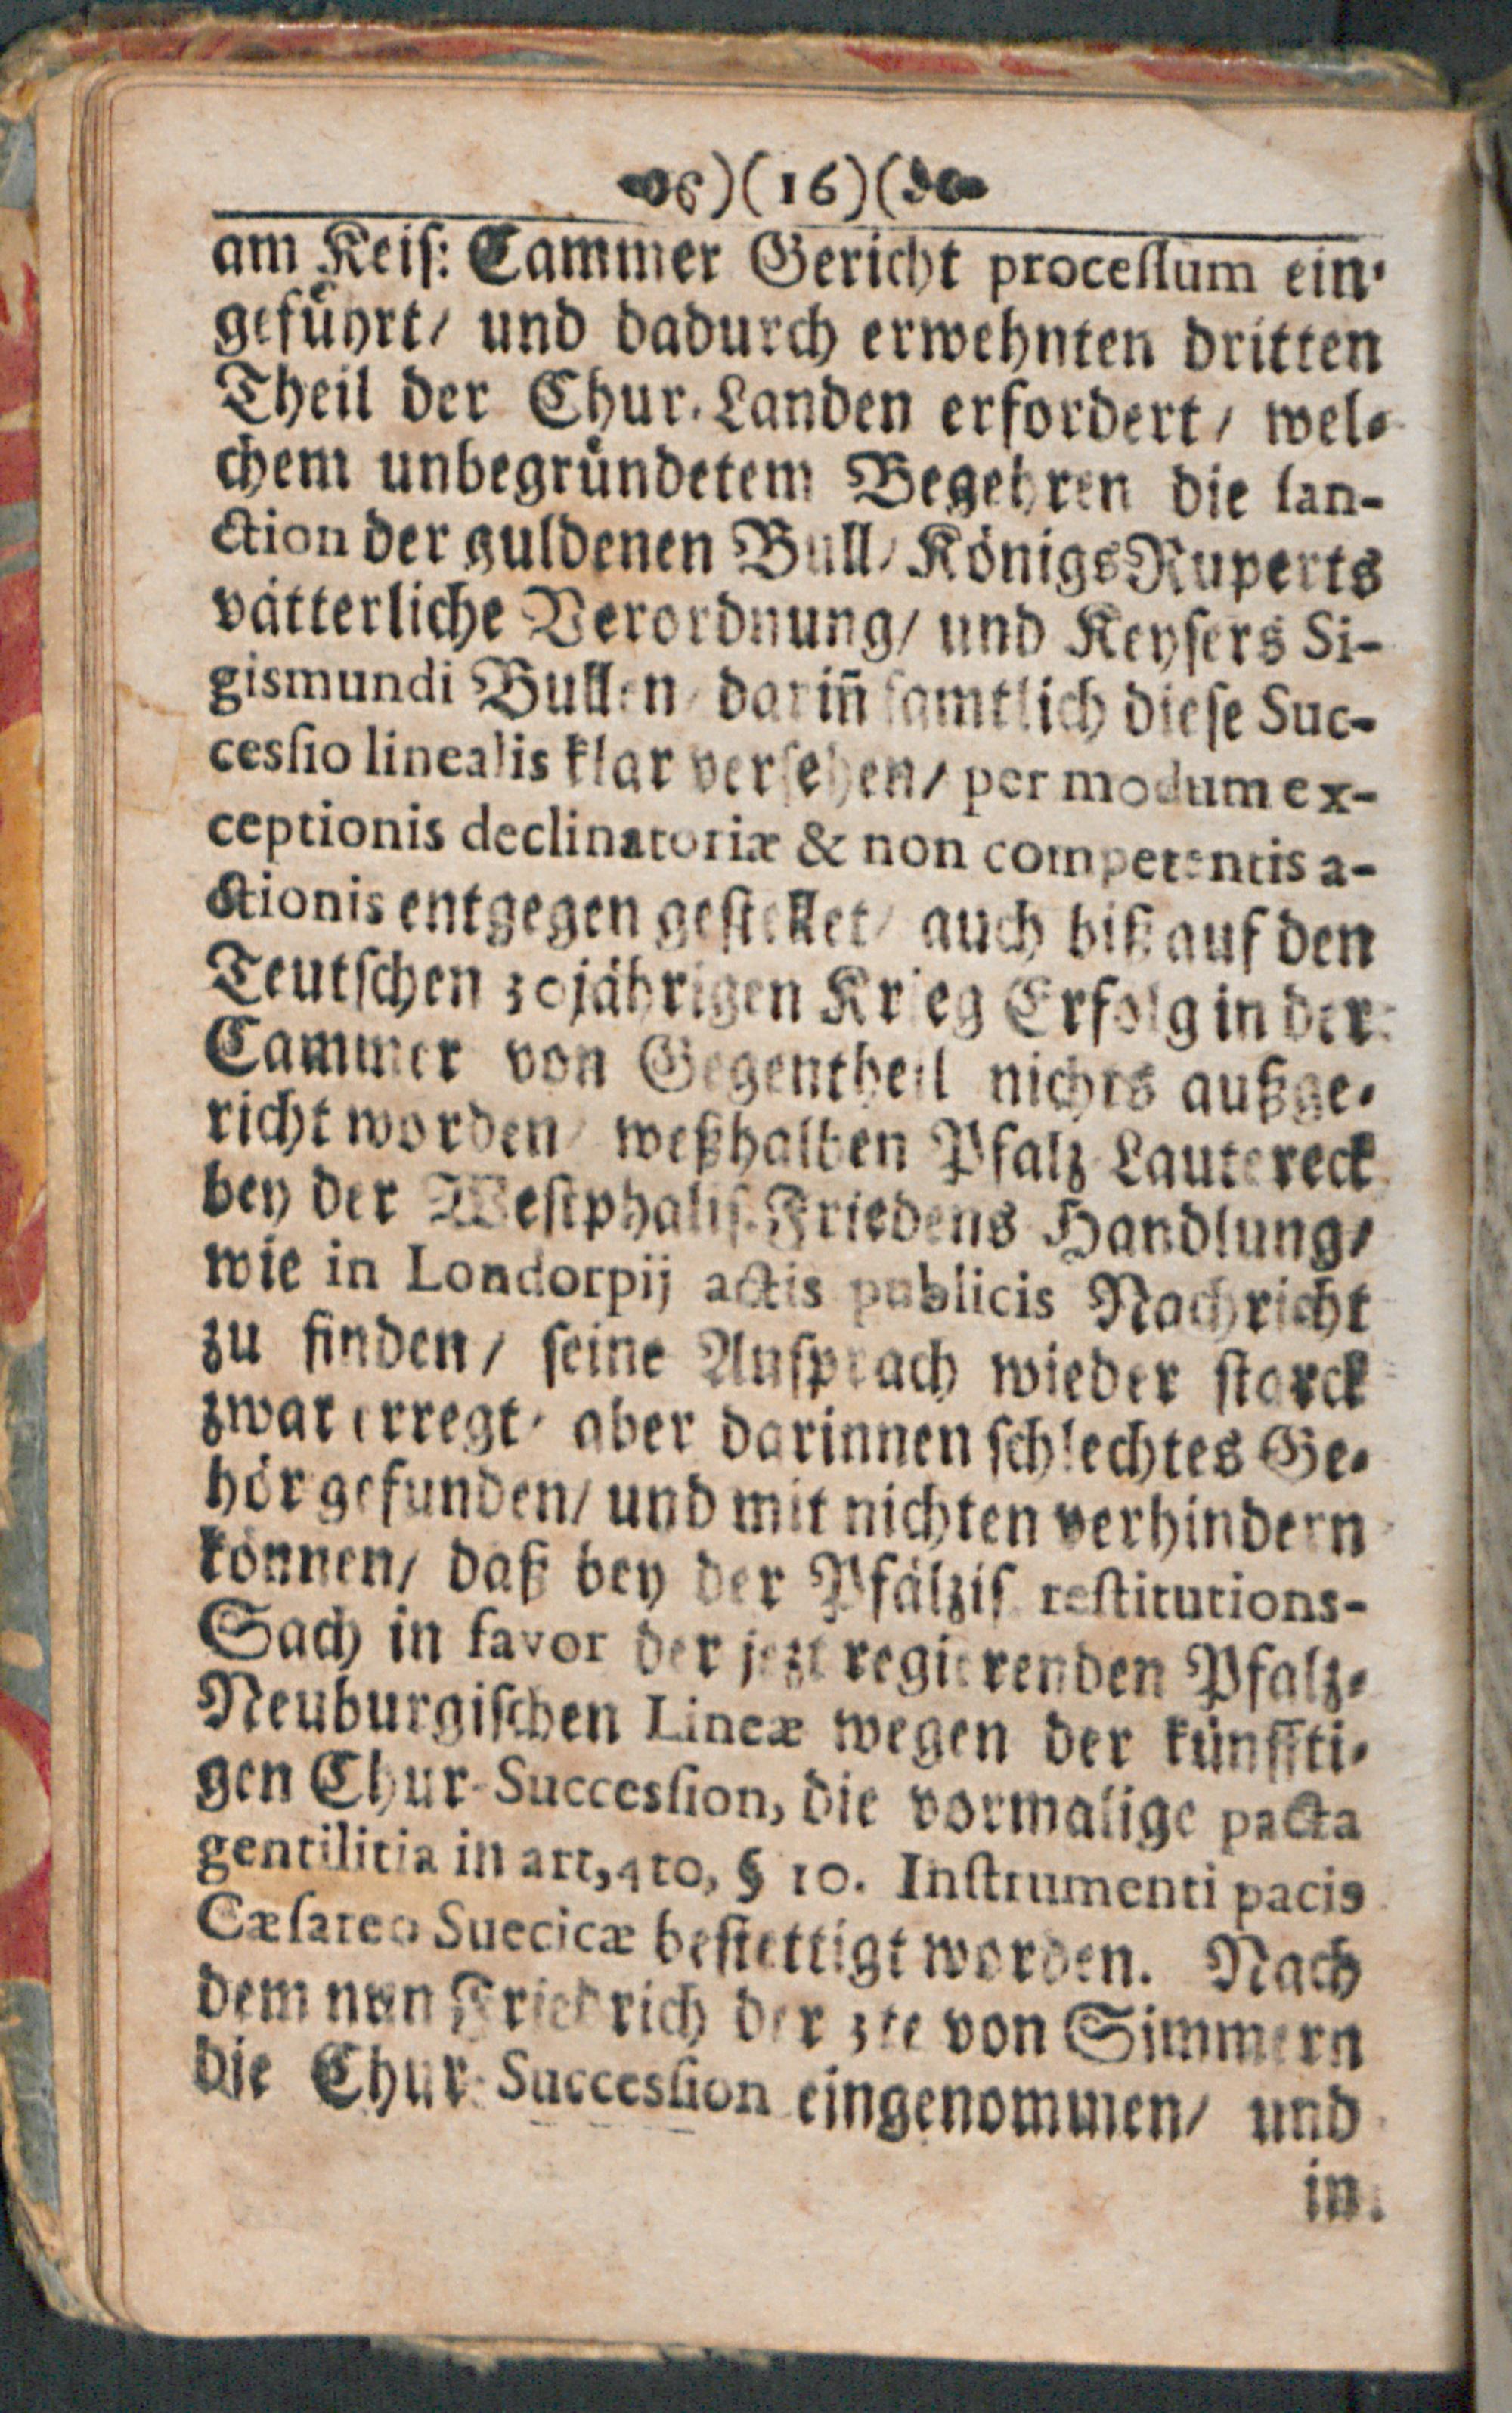 )(16)(
am Keiſ: Cammer Gericht proceſſum ein-
geführt/ und dadurch erwehnten dritten
Theil der Chur-Landen erfordert/ wel-
chem unbegründetem Begehren die ſan-
ction der guldenen Bull/ Königs Ruperts
vätterliche Verordnung/ und Keyſers Si-
gismundi Bullen/ dariñ ſamtlich dieſe Suc-
cesſio linealis klar verſehen/ per modum ex-
ceptionis declinatoriæ & non competentis a-
ctionis entgegen geſtellet/ auch biß auf den
Teutſchen 30jährigen Krieg Erfolg in der
Cammer von Gegentheil nichts außge-
richt worden/ weßhalben Pfalz Lautereck
bey der Weſtphaliſ. Friedens Handlung/
wie in Londorpij actis publicis Nachricht
zu finden/ ſeine Anſprach wieder ſtarck
zwar erregt/ aber darinnen ſchlechtes Ge-
hör gefunden/ und mit nichten verhindern
können/ daß bey der Pfälziſ. reſtitutions-
Sach in favor der jezt regierenden Pfalz-
Neuburgiſchen Lineæ wegen der künffti-
gen Chur-Succesſion, die vormalige pacta
gentilitia in art, 4to, § 10. Inſtrumenti pacis
Cæſareo Suecicæ beſtettigt worden. Nach
dem nun Friedrich der 3te von Simmern
die Chur-Succesſion eingenommen/ und
in-